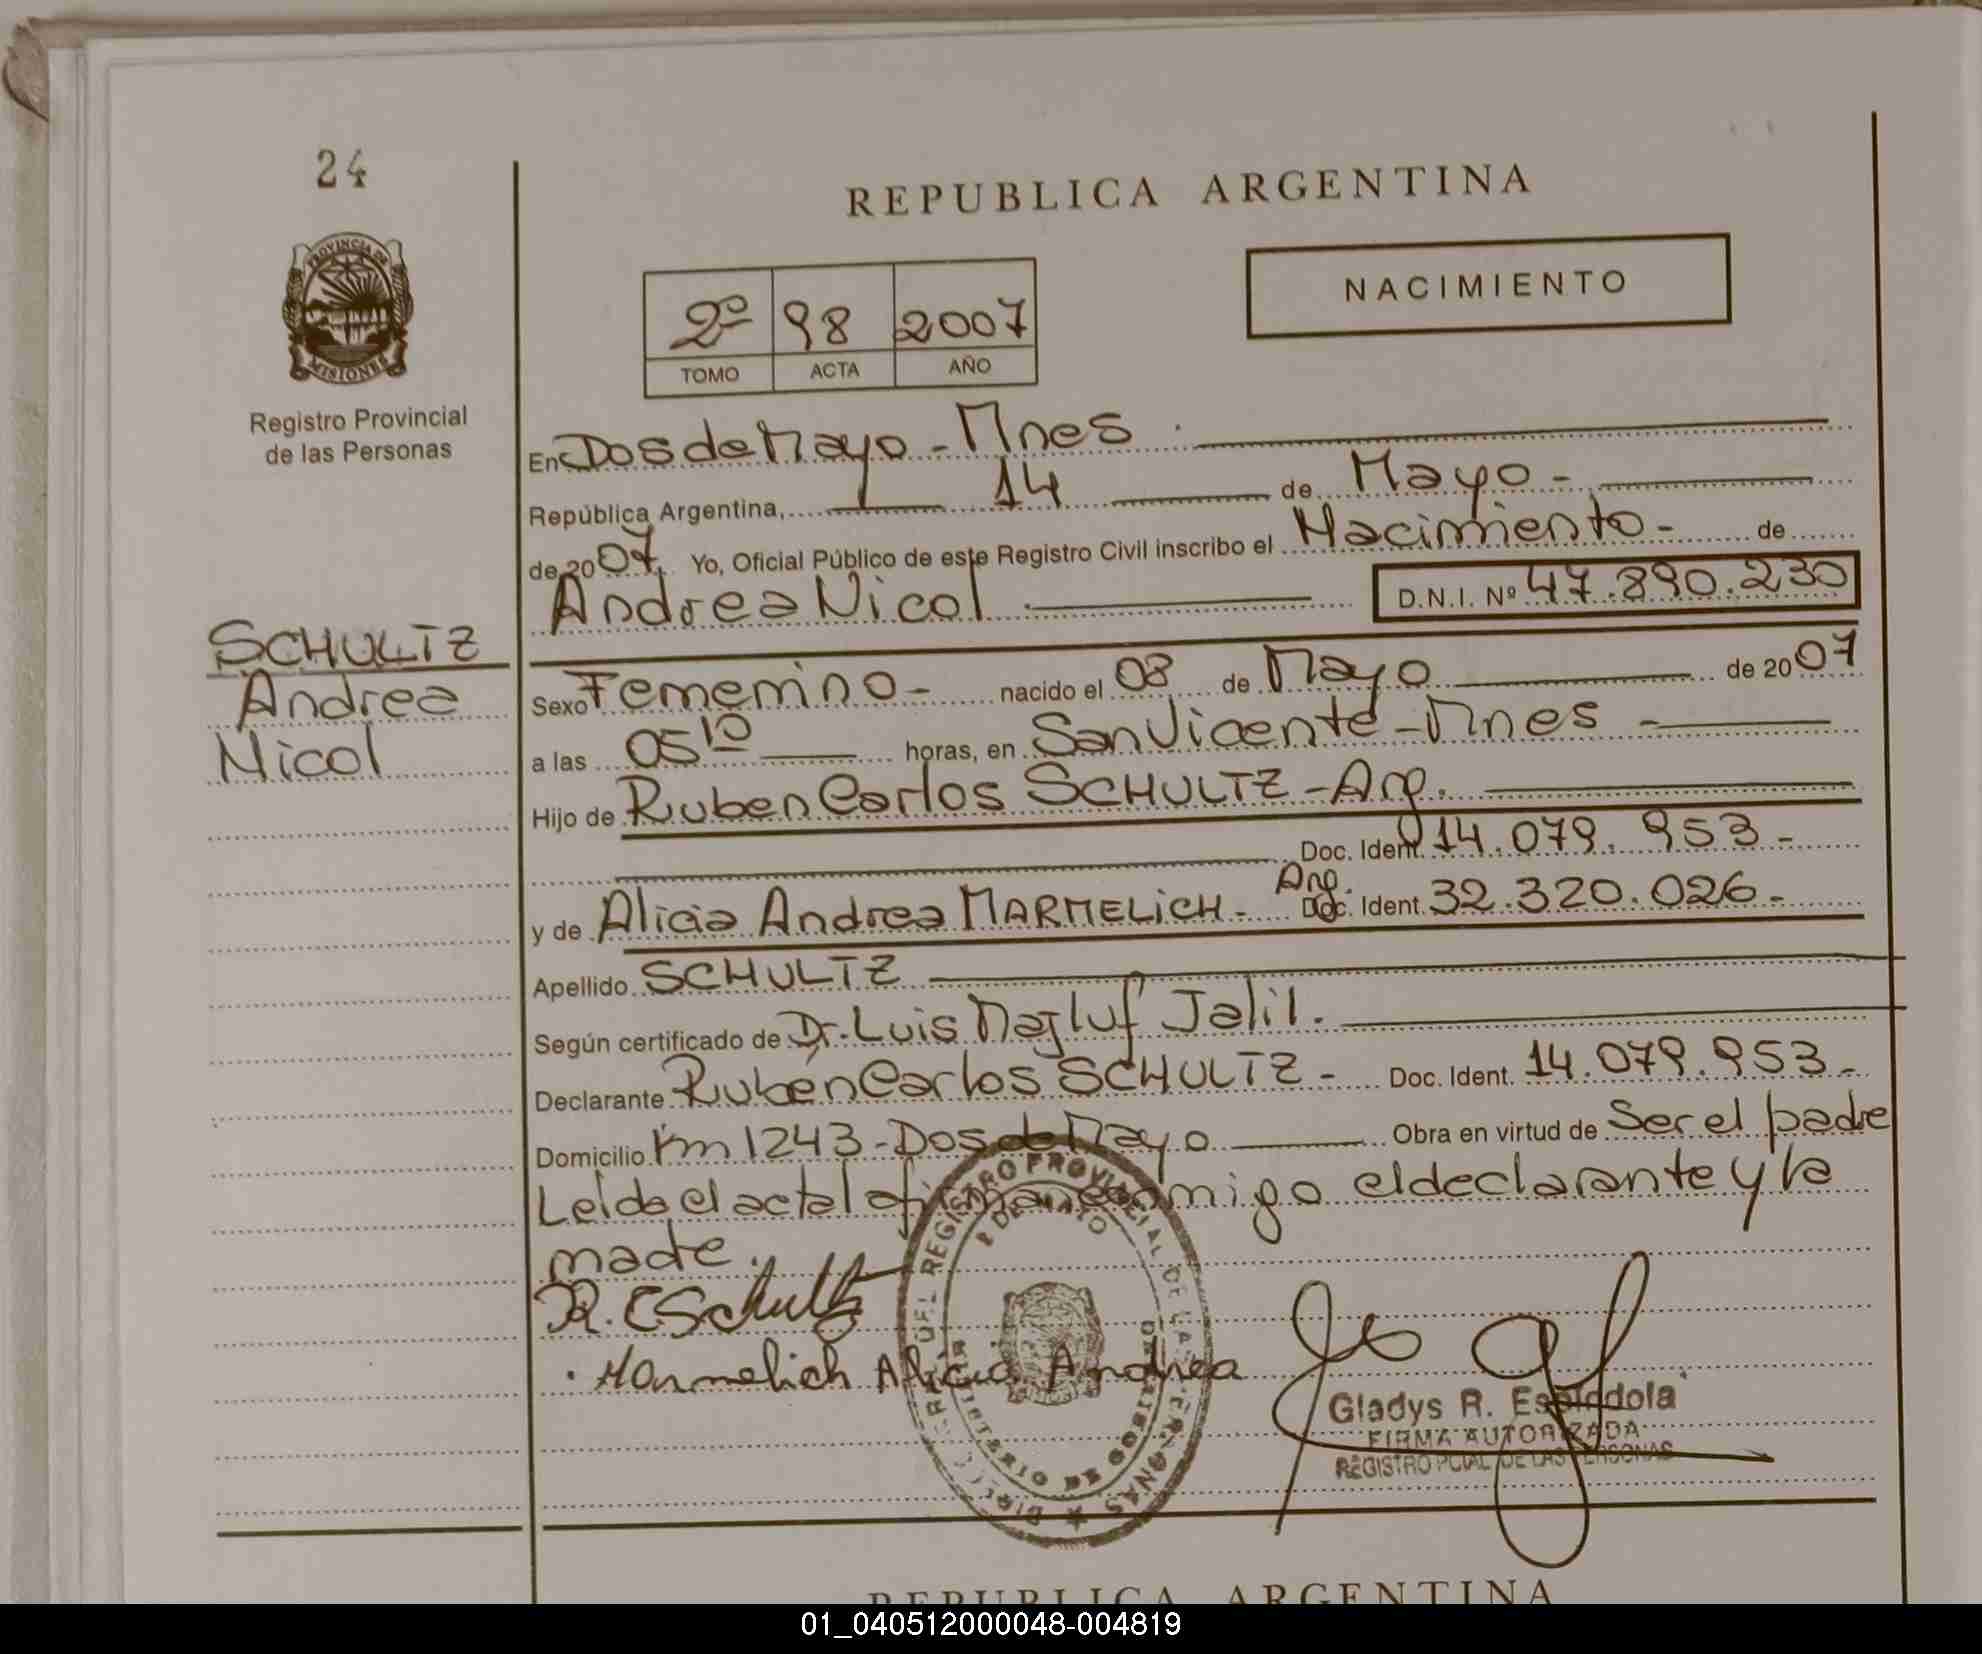 24
PROVINCIA DE
MISIONES
Registro Provincial
de las Personas
SCHULTZ
Andrea
Nicol
REPUBLICA ARGENTINA
NACIMIENTO
2º 98 2007
TOMO ACTA AÑO
En Dos de Mayo - Mnes
República Argentina, 14 de Mayo -
de 2007 Yo, Oficial Público de este Registro Civil inscribo el Nacimiento - de
Andrea Nicol D.N.I. Nº 47.890.230
Sexo Femenino - nacido el 08 de Mayo de 2007
a las 05 10 horas, en San Vicente - Mnes -
Hijo de Ruben Carlos SCHULTZ - Arg.
Doc. Ident. 14.079.953 -
Arg.
y de Alicia Andrea MARMELICH - Doc. Ident. 32.320.026 -
Apellido SCHULTZ
Según certificado de Dr. Luis Majluf Jalil.
Declarante Rubén Carlos SCHULTZ - Doc. Ident. 14.079.953 -
Domicilio Km 1243 - Dos de Mayo Obra en virtud de Ser el padre
Leida el acta la firman conmigo el declarante y la
madre.
R. C Schultz
Marmelich Alicia Andrea
REGISTRO PROVINCIAL DE LAS PERSONAS
2 DE MAYO
Gladys R. Espindola
FIRMA AUTORIZADA
REGISTRO PCIAL. DE LAS PERSONAS
REPUBLICA ARGENTINA
01_040512000048-004819